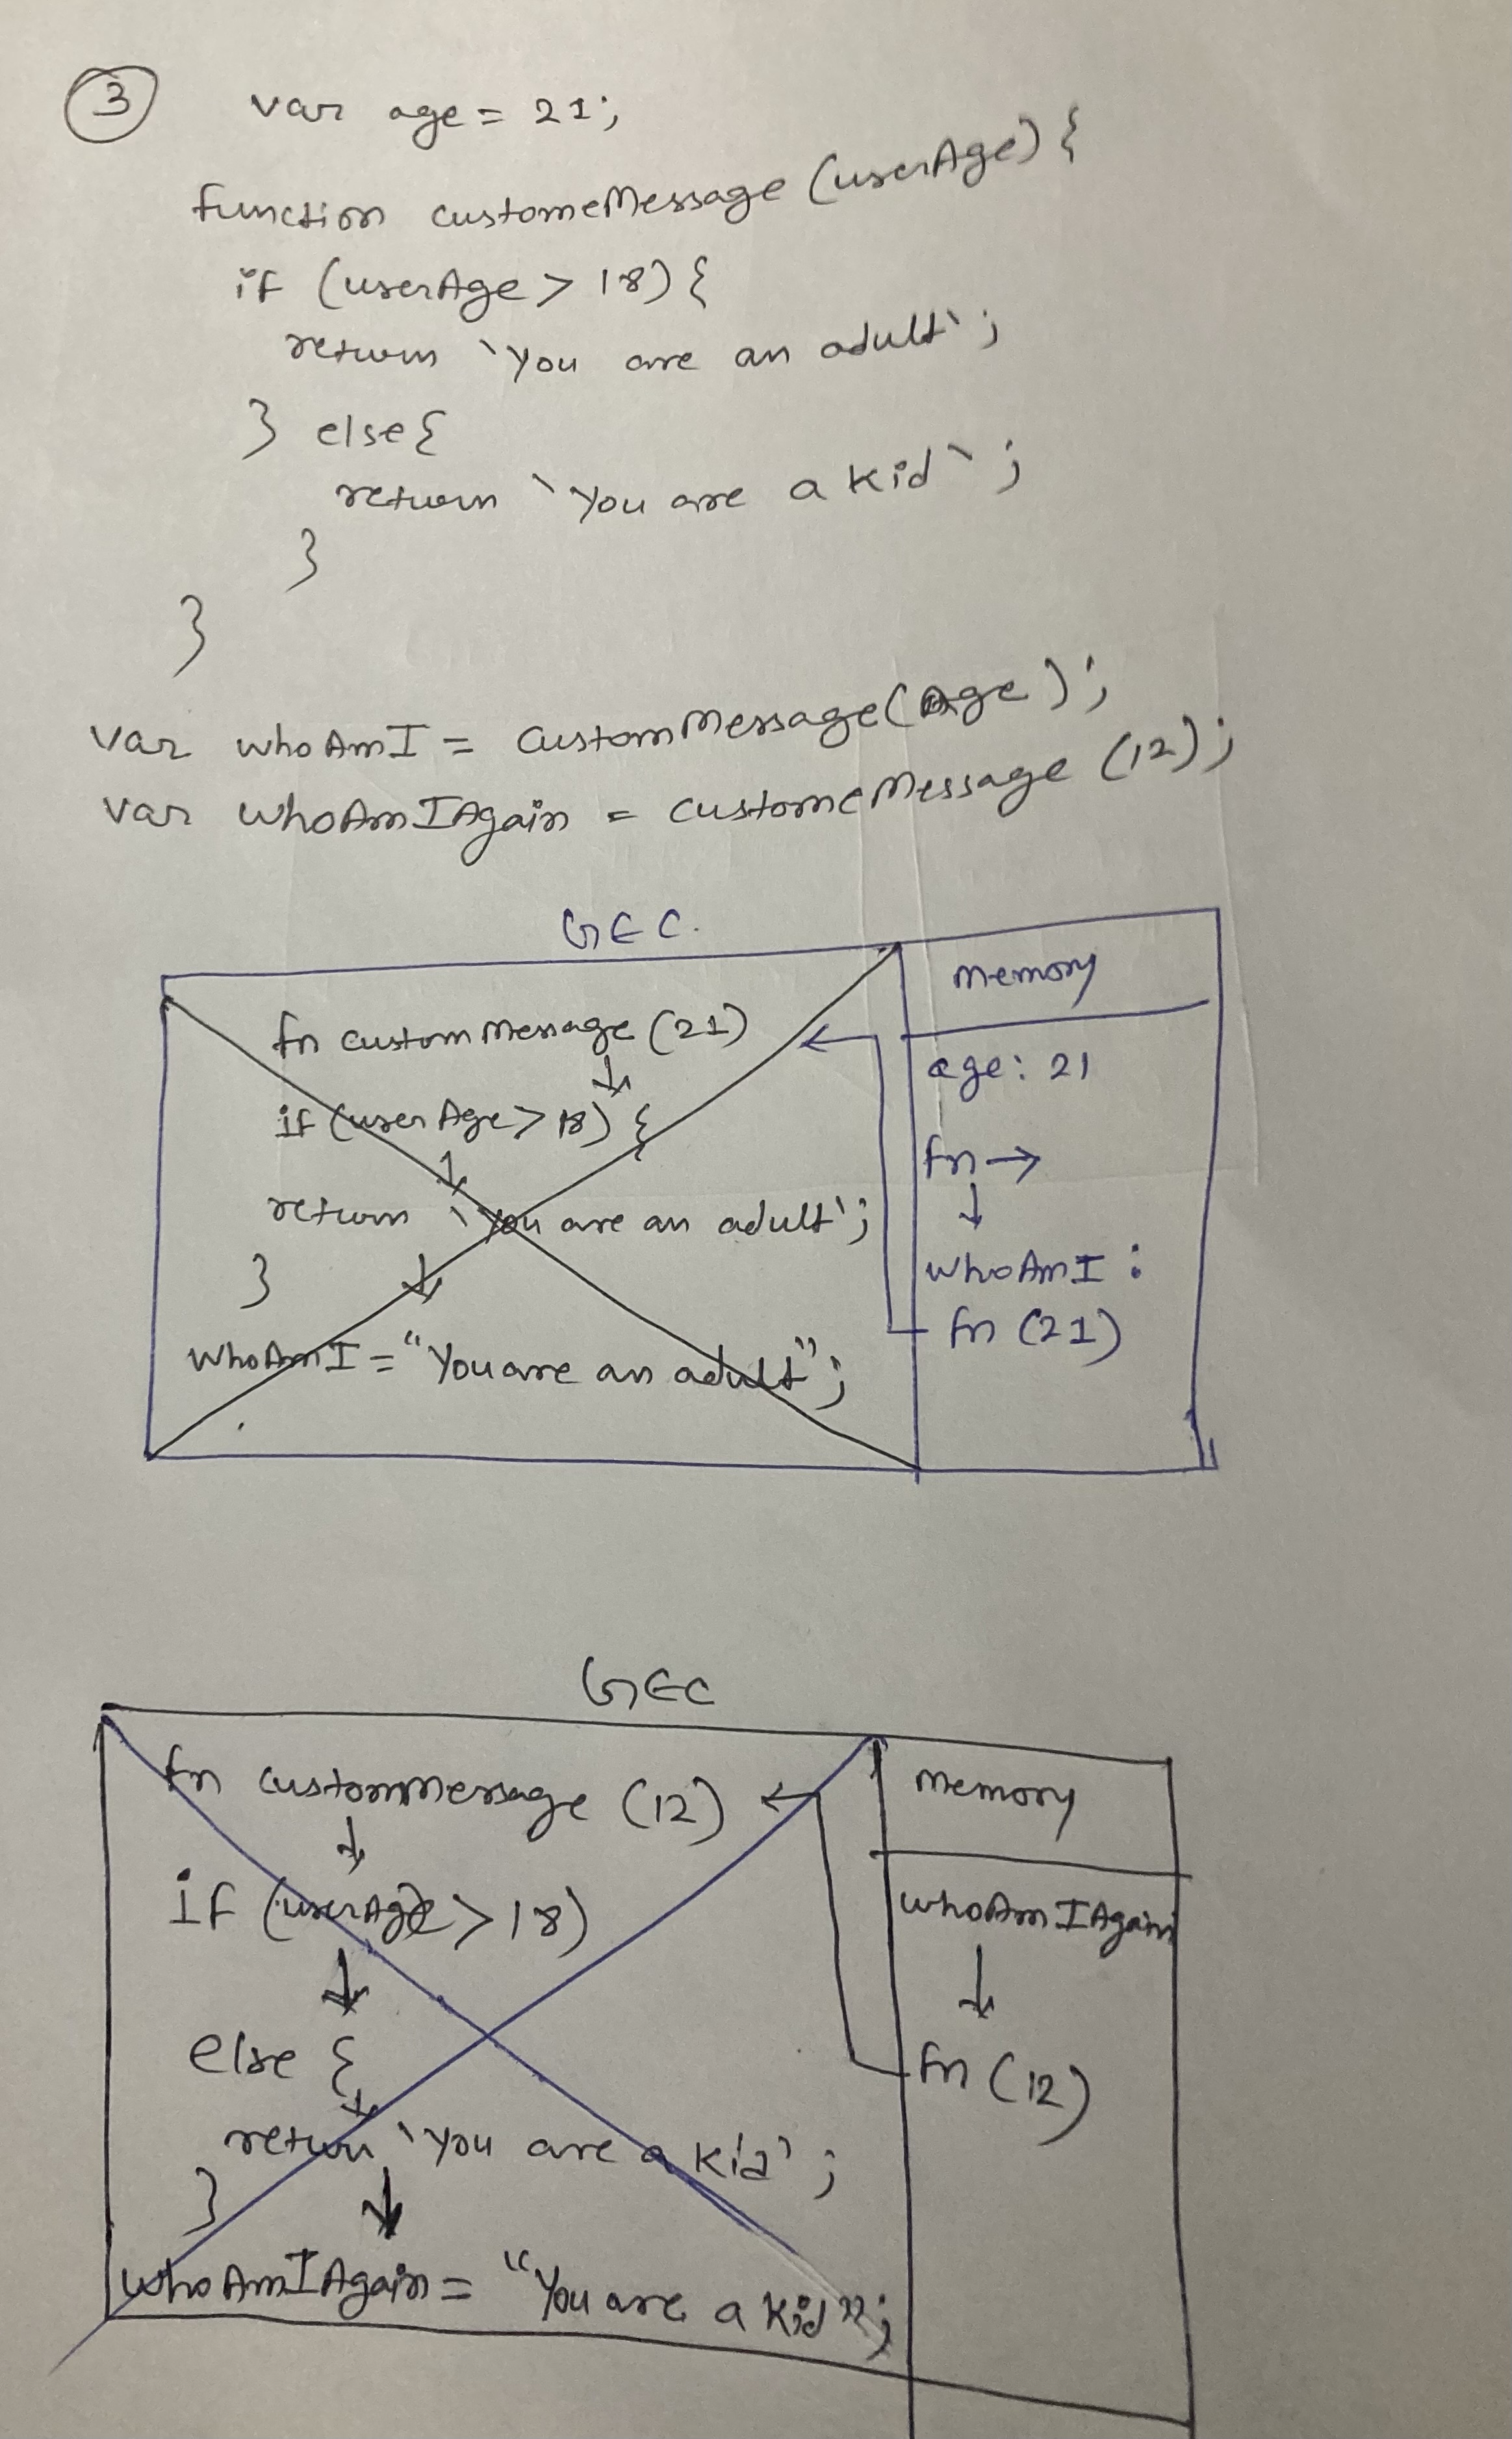 3 var age = 21;
function customeMessage (userAge) {
if (userAge > 18) {
return `You are an adult`;
} else {
return `You are a kid`;
}
}
var whoAmI = customMessage(Age);
var whoAmIAgain = customeMessage (12);
GEC.
memory
fn customMessage (21)
↓
if (userAge > 18) {
↓
return `You are an adult`;
}
↓
whoAmI = "You are an adult";
age: 21
fn →
↓
whoAmI :
fn (21)
GEC
memory
fn customMessage (12)
↓
if (userAge > 18)
↓
else {
↓
return `You are a kid`;
}
↓
whoAmIAgain = "You are a kid";
whoAmIAgain
↓
fn (12)